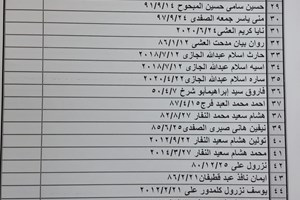 ٢٩ حسین سامی حسین المبحوح ٩١/٩/١٤
٣٠ منی یاسر جمعه الصفدی ٩٧/٩/٢٤
٣١ نایا کریم العشی ٢٠٢٠/٦/٢٤
٣٢ روان بیان مدحت العشی ٨٦/١/١٢
٣٣ حارث اسلام عبدالله الجازی ٢٠١٨/٧/١٢
٣٤ اسیه اسلام عبدالله الجازی ٢٠١٨/٧/١٢
٣٥ ساره اسلام عبدالله الجازی ٢٠٢٠/٤/٢٢
٣٦ فاروق سید إبراهیم أبو شرخ ٥٠/٤/٧
٣٧ احمد محمد العبد فرج ٨٧/٤/١٥
٣٨ هشام سعید محمد النفار ٨٢/٨/٢٧
٣٩ نیفین هانی صبری الصفدی ٨٥/٦/٢٥
٤٠ تولین هشام سعید النفار ٢٠١٢/٩/٢٢
٤١ محمد هشام سعید النفار ٢٠١٤/٣/٢٧
٤٢ نزرول علی ٨٠/١٢/٢٥
٤٣ ایمان نافذ عبد قطیفان ٨٦/٢/٢١
٤٤ یوسف نزرول کلمدور علی ٢٠١٢/٢/٢١